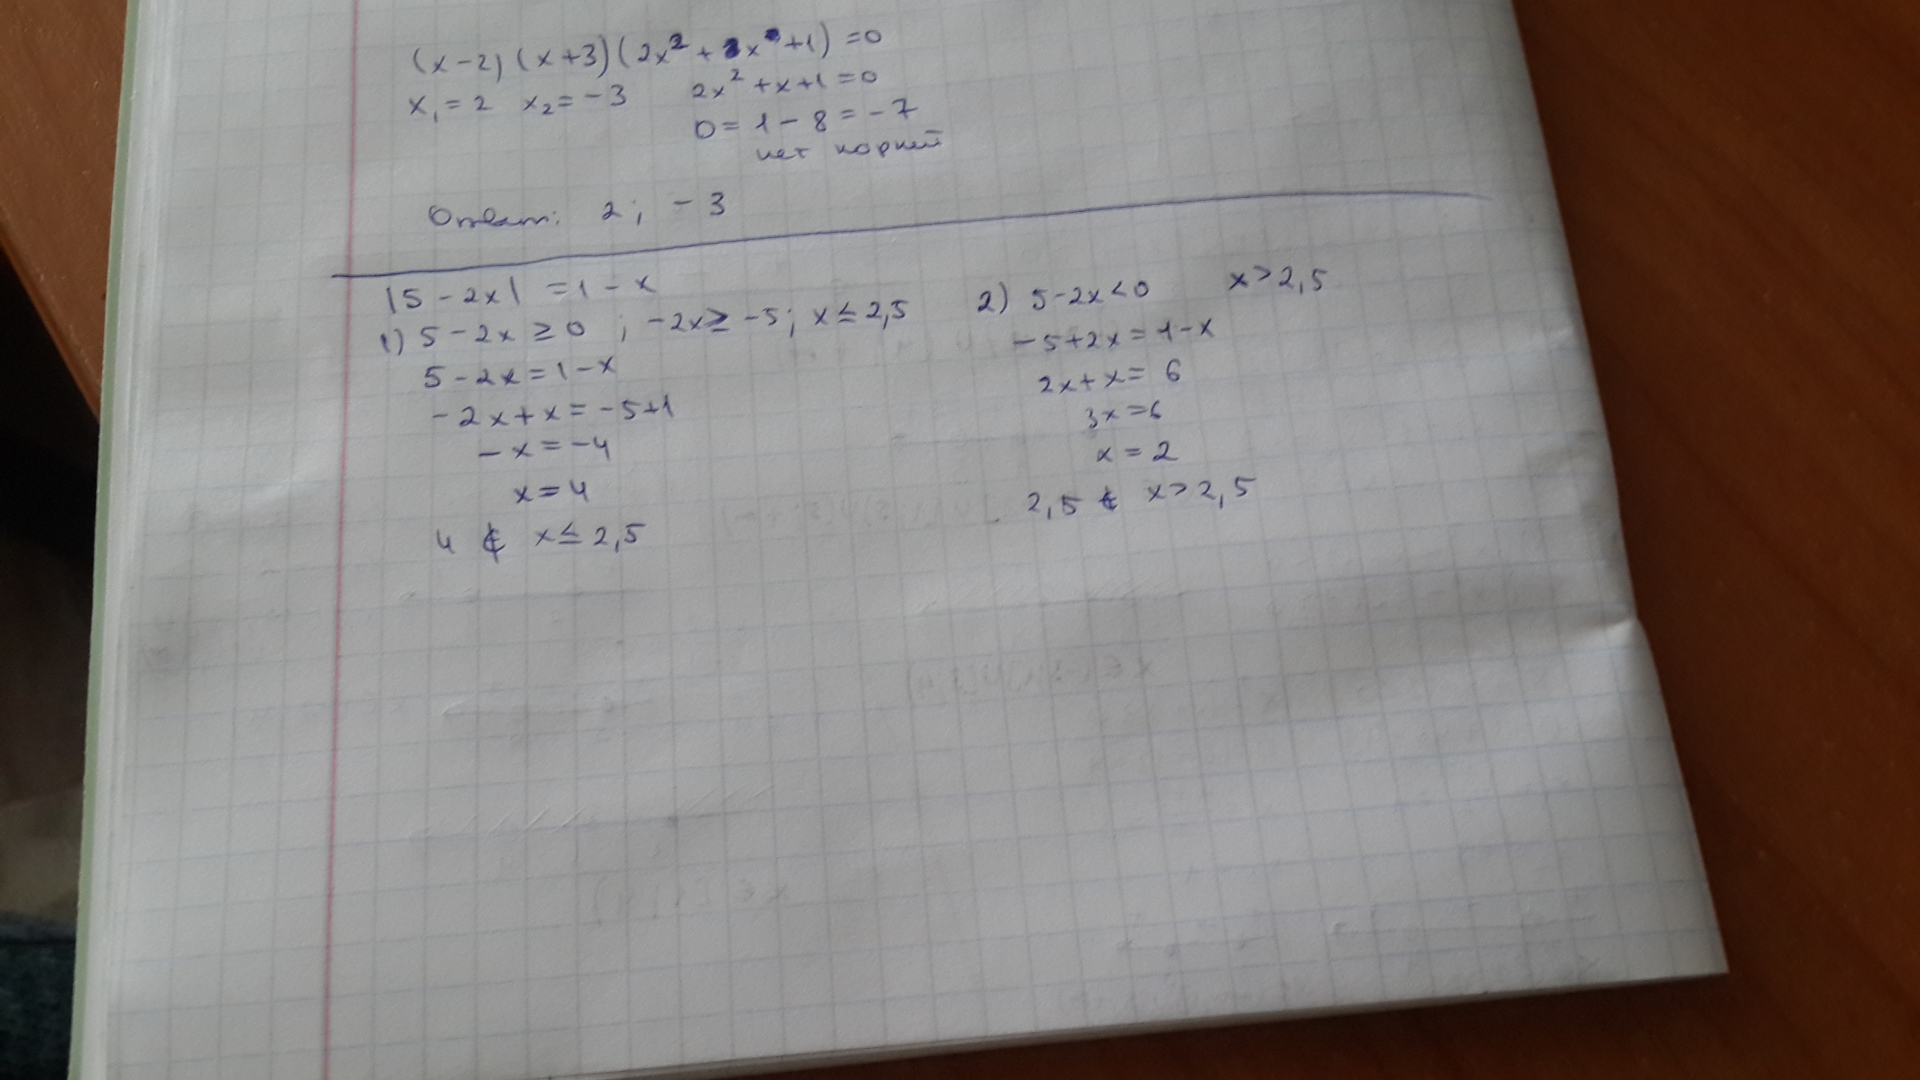 (x-2)(x+3)(2x²+x+1)=0
x₁=2 x₂=-3 2x²+x+1=0
D=1-8=-7
нет корней
Ответ: 2; -3
|5-2x|=1-x
1) 5-2x≥0; -2x≥-5; x≤2,5
5-2x=1-x
-2x+x=-5+1
-x=-4
x=4
4 ∉ x≤2,5
2) 5-2x<0 x>2,5
-5+2x=1-x
2x+x=6
3x=6
x=2
2,5 ∉ x>2,5